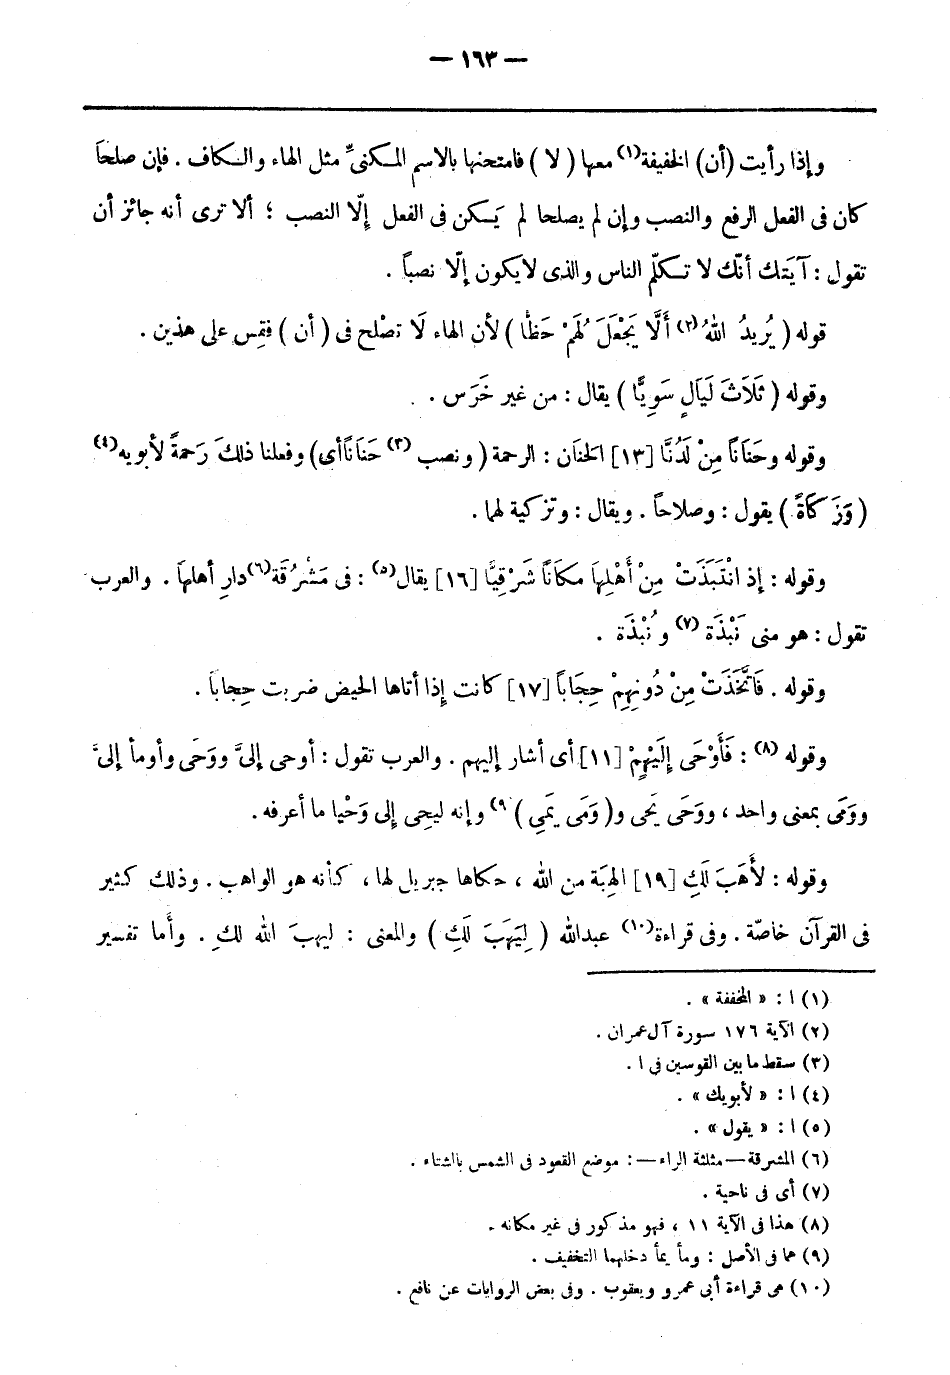 — ١٦٣ —
وإذا رأيت (أن) الخفيفة(١) معها ( لا ) فامتحنها بالاسم المكنىّ مثل الهاء والكاف . فإن صلحَا
كان فى الفعل الرفع والنصب وإن لم يصلحا لم يَكن فى الفعل إلّا النصب ؛ ألا ترى أنه جائز أن
تقول : آيَتك أنّك لا تكلّم الناس والذى لا يكون إلّا نصباً .
قوله ( يُرِيدُ اللهُ(٢) أَلَّا يَجْعَلَ لَهُمْ حَظًّا ) لأن الهاء لَا تصْلح فى ( أن ) فقِس على هذين .
وقوله ( ثَلَاثَ لَيَالٍ سَوِيًّا ) يقال : من غير خَرَس .
وقوله وحَنَانًا مِنْ لَدُنَّا [١٣] الحَنَان : الرحمة ( ونصب (٣) حَنَانًا أى) وفعلنا ذلكَ رَحمةً لأبويه(٤)
( وَزَكَاةً ) يقول : وصلاحاً . ويقال : وتزكية لهما .
وقوله : إذ انْتَبَذَتْ مِنْ أَهْلِهَا مكَانًا شَرْقِيًّا [١٦] يقال(٥) : فى مَشْرُقَة(٦) دارِ أهلهَا . والعرب
تقول : هو منى نَبْذَة (٧) ونُبْذَة .
وقوله . فَاتَّخَذَتْ مِنْ دُونِهِمْ حِجَاباً [١٧] كانت إذا أتاها الحيض ضربت حِجاباً .
وقوله (٨) : فَأَوْحَى إلَيْهِمْ [١١] أى أشار إليهم . والعرب تقول : أوحى إلىَّ ووَحَى وأومأ إلىَّ
ووَمَى بمعنى واحد ، ووَحَى يَحى و( وَمَى يَمِى ) (٩ وإنه ليحِى إلى وَحْيا ما أعرفه .
وقوله : لأَهَبَ لَكِ [١٩] الهِبَة من الله ، حكاها جبريل لها ، كأنه هو الواهب . وذلك كثير
فى القرآن خاصّة . وفى قراءة(١٠) عبدالله ( لِيَهَبَ لَكِ ) والمعنى : ليهبَ الله لكِ . وأما تفسير
(١) ا : « المخففة » .
(٢) الآية ١٧٦ سورة آل عمران .
(٣) سقط ما بين القوسين فى ا .
(٤) ا : « لأبويك » .
(٥) ا : « يقول » .
(٦) المشرقة — مثلثة الراء — : موضع القعود فى الشمس بالشتاء .
(٧) أى فى ناحية .
(٨) هذا فى الآية ١١ ، فهو مذكور فى غير مكانه .
(٩) هما فى الأصل : ومأ يمأ دخلهما التخفيف .
(١٠) هى قراءة أبى عمرو ويعقوب . وفى بعض الروايات عن نافع .